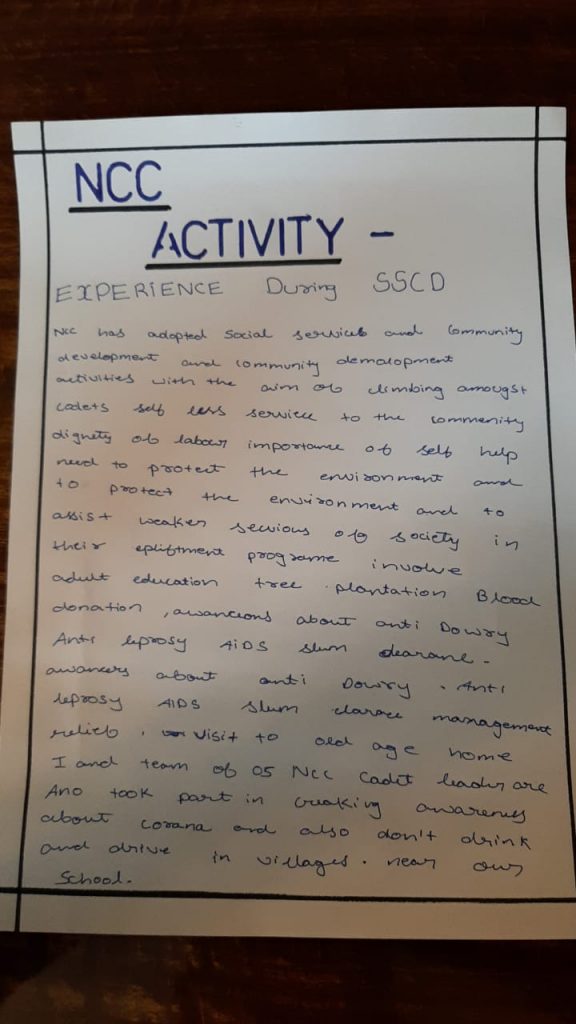 NCC
ACTIVITY -
EXPERIENCE During SSCD
NCC has adopted Social services and Community
development and community demolopment
activities with the aim of climbing amougst
cadets self less service to the commenity
dignety of labour importance of self help
need to protect the environment and
to protect the environment and to
assist weaker secvious of society in
their epliftment programe involve
adult education tree plantation Blood
donation , awancions about anti Dowry
Anti leprosy AIDS slum clearane.
awancers about anti Dowry . Anti
leprosy AIDS slum clarace management
relief , visit to old age home
I and team of 05 NCC Cadit leader are
Ano took part in creaking awareness
about corana and also don't drink
and drive in villages. near our
School.